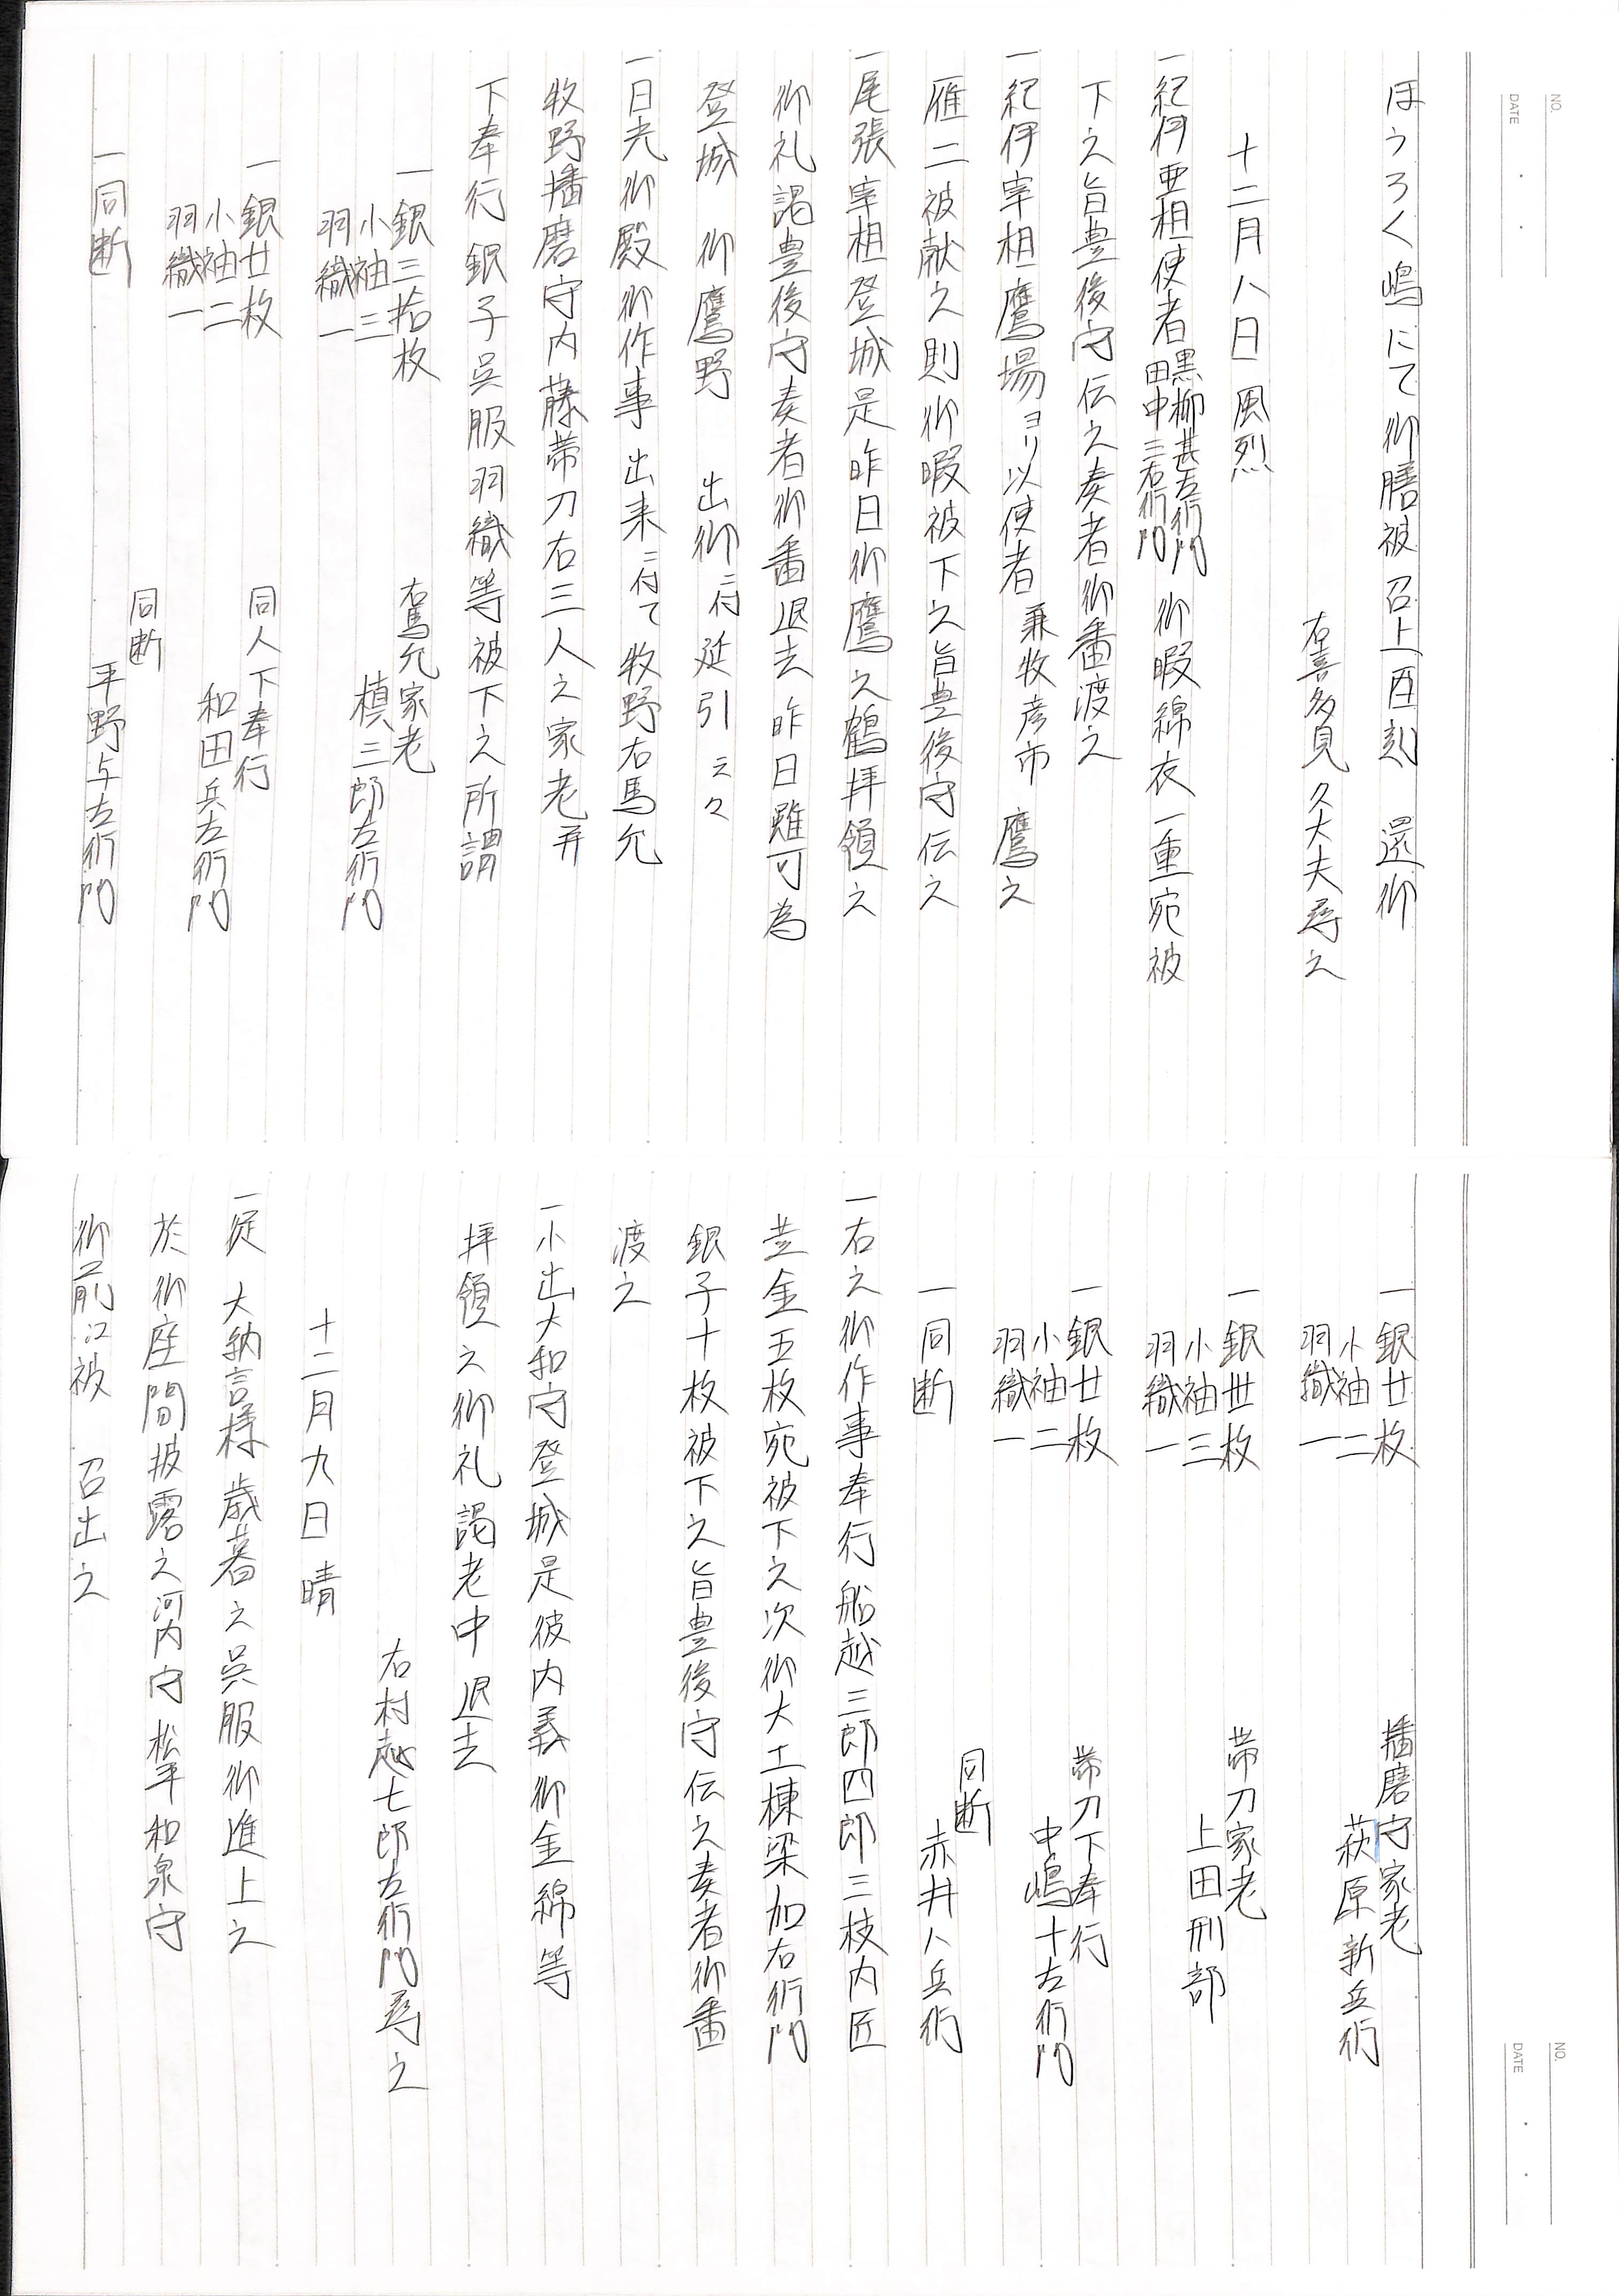 NO.
DATE
ほうろく嶋にて御膳被召上酉刻 還御
右喜多見久大夫尋之
十二月八日 風烈
一紀伊亜相使者黒柳甚左衛門 御暇綿衣一重宛被
田中三右衛門
下之旨豊後守伝之奏者御番渡之
一紀伊宰相鷹場ヨリ以使者 兼牧彦市 鷹之
雁二被献之則御暇被下之旨豊後守伝之
一尾張宰相登城是昨日御鷹之鶴拝領之
御礼謁豊後守奏者御番退去 昨日雖可為
登城 御鷹野 出御ニ付延引云々
一日光御殿御作事出来ニ付て牧野右馬允
牧野播磨守内藤帯刀右三人之家老并
下奉行銀子呉服羽織等被下之所謂
一銀三拾枚
小袖三
羽織一
右馬允家老
槙三郎左衛門
一銀廿枚
小袖二
羽織一
同人下奉行
和田兵左衛門
一同断
同断
平野与左衛門
NO.
DATE
一銀廿枚
小袖二
羽織一
播磨守家老
萩原新兵衛
一銀丗枚
小袖三
羽織一
帯刀家老
上田刑部
一銀廿枚
小袖二
羽織一
帯刀下奉行
中嶋十左衛門
一同断
同断
赤井八兵衛
一右之御作事奉行船越三郎四郎三枝内匠
金五枚宛被下之次御大工棟梁加右衛門
銀子十枚被下之旨豊後守伝之奏者御番
渡之
一小出大和守登城是彼内義御金綿等
拝領之御礼謁老中退去
右村越七郎左衛門尋之
十二月九日 晴
一従 大納言様歳暮之呉服御進上之
於御座間披露之河内守松平和泉守
御前江被 召出之